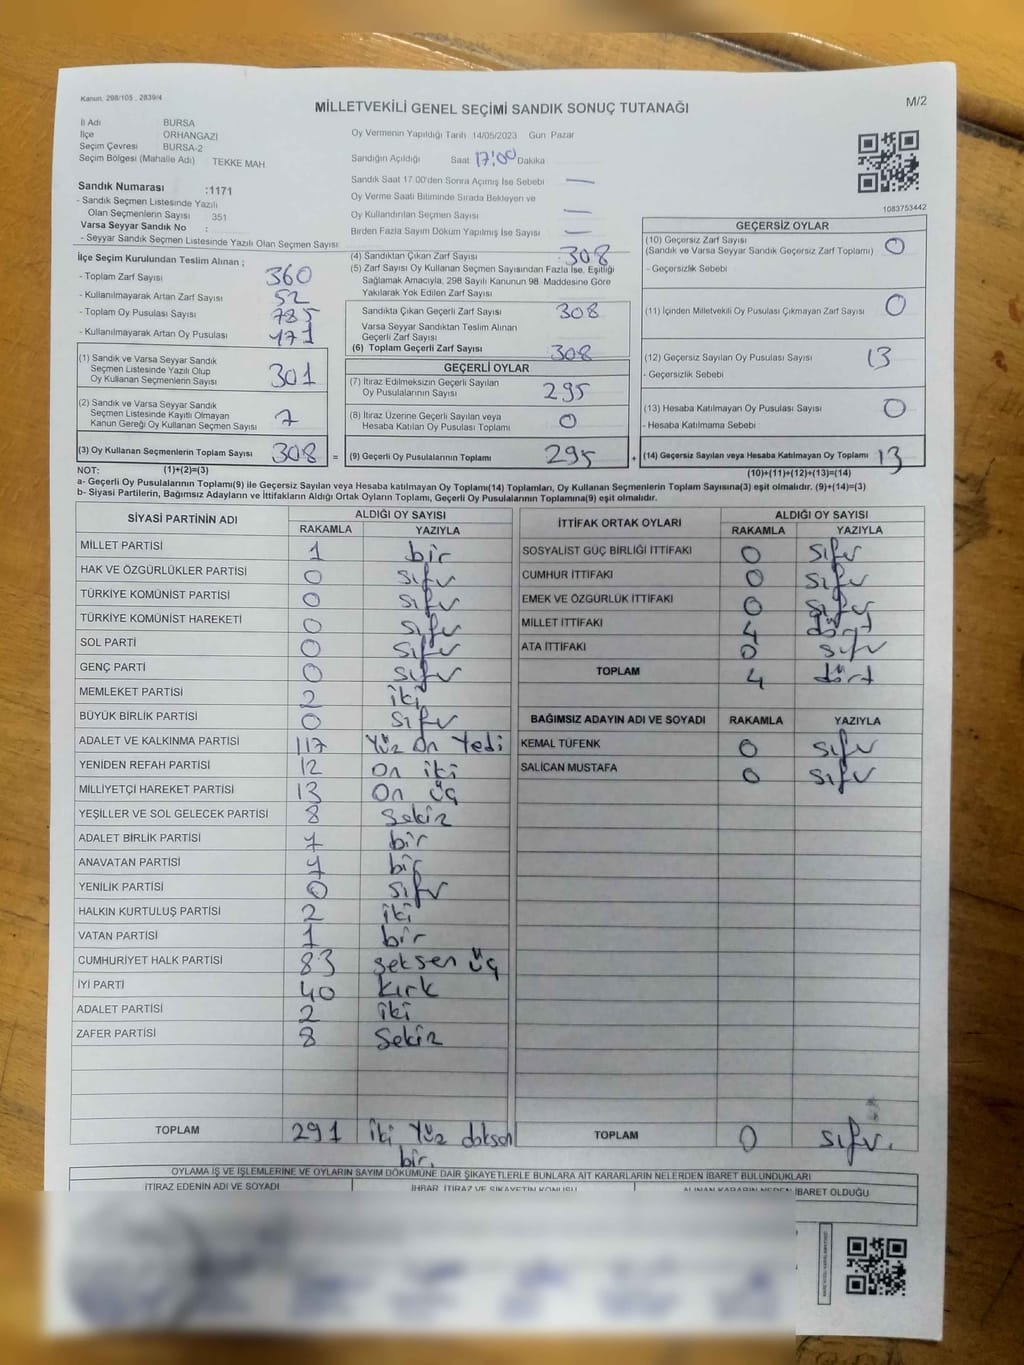 Kanun, 298/105 , 2839/4
MİLLETVEKİLİ GENEL SEÇİMİ SANDIK SONUÇ TUTANAĞI
M/2
İl Adı BURSA
İlçe ORHANGAZİ
Seçim Çevresi BURSA-2
Seçim Bölgesi (Mahalle Adı) TEKKE MAH.
Sandık Numarası :1171
- Sandık Seçmen Listesinde Yazılı
Olan Seçmenlerin Sayısı 351
Varsa Seyyar Sandık No :
- Seyyar Sandık Seçmen Listesinde Yazılı Olan Seçmen Sayısı
Oy Vermenin Yapıldığı Tarih 14/05/2023 Gün Pazar
Sandığın Açıldığı Saat 17:00 Dakika
Sandık Saat 17.00'den Sonra Açımış İse Sebebi —
Oy Verme Saati Bitiminde Sırada Bekleyen ve
Oy Kullandırılan Seçmen Sayısı —
Birden Fazla Sayım Döküm Yapılmış İse Sayısı —
1083753442
İlçe Seçim Kurulundan Teslim Alınan ;
- Toplam Zarf Sayısı 360
- Kullanılmayarak Artan Zarf Sayısı 52
- Toplam Oy Pusulası Sayısı 785
- Kullanılmayarak Artan Oy Pusulası 471
(1) Sandık ve Varsa Seyyar Sandık
Seçmen Listesinde Yazılı Olup
Oy Kullanan Seçmenlerin Sayısı 301
(2) Sandık ve Varsa Seyyar Sandık
Seçmen Listesinde Kayıtlı Olmayan
Kanun Gereği Oy Kullanan Seçmen Sayısı 7
(3) Oy Kullanan Seçmenlerin Toplam Sayısı 308 =
(4) Sandıktan Çıkan Zarf Sayısı 308
(5) Zarf Sayısı Oy Kullanan Seçmen Sayısından Fazla İse, Eşitliği
Sağlamak Amacıyla, 298 Sayılı Kanunun 98. Maddesine Göre
Yakılarak Yok Edilen Zarf Sayısı
Sandıkta Çıkan Geçerli Zarf Sayısı 308
Varsa Seyyar Sandıktan Teslim Alınan
Geçerli Zarf Sayısı
(6) Toplam Geçerli Zarf Sayısı 308
GEÇERLİ OYLAR
(7) İtiraz Edilmeksizin Geçerli Sayılan
Oy Pusulalarının Sayısı 295
(8) İtiraz Üzerine Geçerli Sayılan veya
Hesaba Katılan Oy Pusulası Toplamı 0
(9) Geçerli Oy Pusulalarının Toplamı 295 +
GEÇERSİZ OYLAR
(10) Geçersiz Zarf Sayısı
(Sandık ve Varsa Seyyar Sandık Geçersiz Zarf Toplamı) 0
- Geçersizlik Sebebi
(11) İçinden Milletvekili Oy Pusulası Çıkmayan Zarf Sayısı 0
(12) Geçersiz Sayılan Oy Pusulası Sayısı 13
- Geçersizlik Sebebi
(13) Hesaba Katılmayan Oy Pusulası Sayısı 0
- Hesaba Katılmama Sebebi
(14) Geçersiz Sayılan veya Hesaba Katılmayan Oy Toplamı 13
NOT: (1)+(2)=(3) (10)+(11)+(12)+(13)=(14)
a- Geçerli Oy Pusulalarının Toplamı(9) ile Geçersiz Sayılan veya Hesaba katılmayan Oy Toplamı(14) Toplamları, Oy Kullanan Seçmenlerin Toplam Sayısına(3) eşit olmalıdır. (9)+(14)=(3)
b- Siyasi Partilerin, Bağımsız Adayların ve İttifakların Aldığı Ortak Oyların Toplamı, Geçerli Oy Pusulalarının Toplamına(9) eşit olmalıdır.
SİYASİ PARTİNİN ADI ALDIĞI OY SAYISI
RAKAMLA YAZIYLA
MİLLET PARTİSİ 1 bir
HAK VE ÖZGÜRLÜKLER PARTİSİ 0 sıfır
TÜRKİYE KOMÜNİST PARTİSİ 0 sıfır
TÜRKİYE KOMÜNİST HAREKETİ 0 sıfır
SOL PARTİ 0 sıfır
GENÇ PARTİ 0 sıfır
MEMLEKET PARTİSİ 2 iki
BÜYÜK BİRLİK PARTİSİ 0 sıfır
ADALET VE KALKINMA PARTİSİ 117 Yüz On Yedi
YENİDEN REFAH PARTİSİ 12 On iki
MİLLİYETÇİ HAREKET PARTİSİ 13 On üç
YEŞİLLER VE SOL GELECEK PARTİSİ 8 Sekiz
ADALET BİRLİK PARTİSİ 1 bir
ANAVATAN PARTİSİ 1 bir
YENİLİK PARTİSİ 0 sıfır
HALKIN KURTULUŞ PARTİSİ 2 iki
VATAN PARTİSİ 1 bir
CUMHURİYET HALK PARTİSİ 83 seksen üç
İYİ PARTİ 40 kırk
ADALET PARTİSİ 2 iki
ZAFER PARTİSİ 8 Sekiz
TOPLAM 291 iki Yüz doksan
bir.
İTTİFAK ORTAK OYLARI ALDIĞI OY SAYISI
RAKAMLA YAZIYLA
SOSYALİST GÜÇ BİRLİĞİ İTTİFAKI 0 sıfır
CUMHUR İTTİFAKI 0 sıfır
EMEK VE ÖZGÜRLÜK İTTİFAKI 0 sıfır
MİLLET İTTİFAKI 4 dört
ATA İTTİFAKI 0 sıfır
TOPLAM 4 dört
BAĞIMSIZ ADAYIN ADI VE SOYADI RAKAMLA YAZIYLA
KEMAL TÜFENK 0 sıfır
SALİCAN MUSTAFA 0 sıfır
TOPLAM 0 sıfır.
OYLAMA İŞ VE İŞLEMLERİNE VE OYLARIN SAYIM DÖKÜMÜNE DAİR ŞİKAYETLERLE BUNLARA AİT KARARLARIN NELERDEN İBARET BULUNDUKLARI
İTİRAZ EDENİN ADI VE SOYADI İHBAR, İTİRAZ VE ŞİKAYETİN KONUSU ALINAN KARARIN NEDEN İBARET OLDUĞU